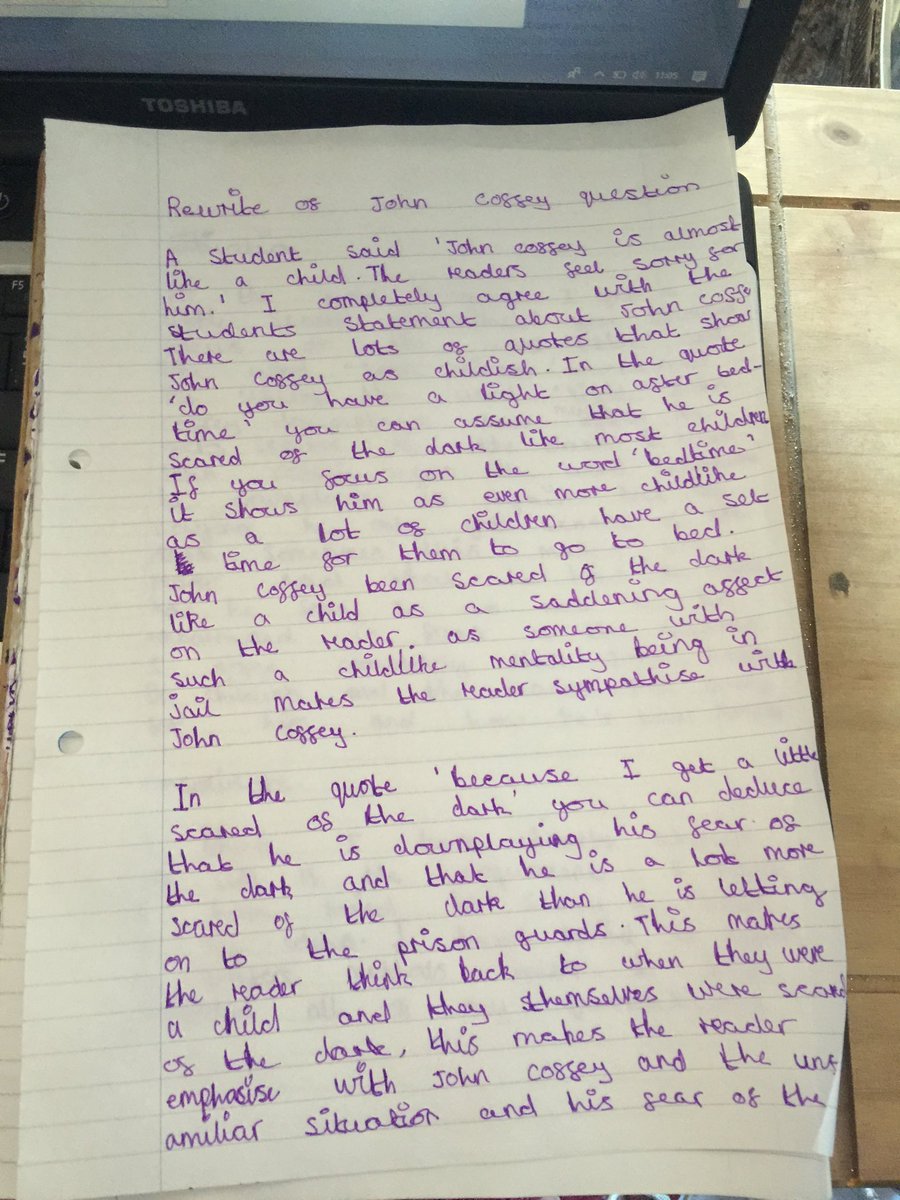 11:05
TOSHIBA
F5
Rewrite of John Coffey question
A student said 'John coffey is almost
like a child. The readers feel sorry for
him.' I completely agree with the
students statement about John Coffe
There are lots of quotes that show
John Coffey as childish. In the quote
'do you have a light on after bed-
time' you can assume that he is
scared of the dark like most children
If you focus on the word 'bedtime'
it shows him as even more childlike
as a lot of children have a set
time for them to go to bed.
John Coffey been scared of the dark
like a child as a saddening affect
on the reader. as someone with
such a childlike mentality being in
jail makes the reader sympathise with
John Coffey.
In the quote 'because I get a little
scared of the dark' you can deduce
that he is downplaying his fear of
the dark and that he is a lot more
scared of the dark than he is letting
on to the prison guards. This makes
the reader think back to when they were
a child and they themselves were scared
of the dark, this makes the reader
emphasise with John Coffey and the unf
amiliar situation and his fear of the